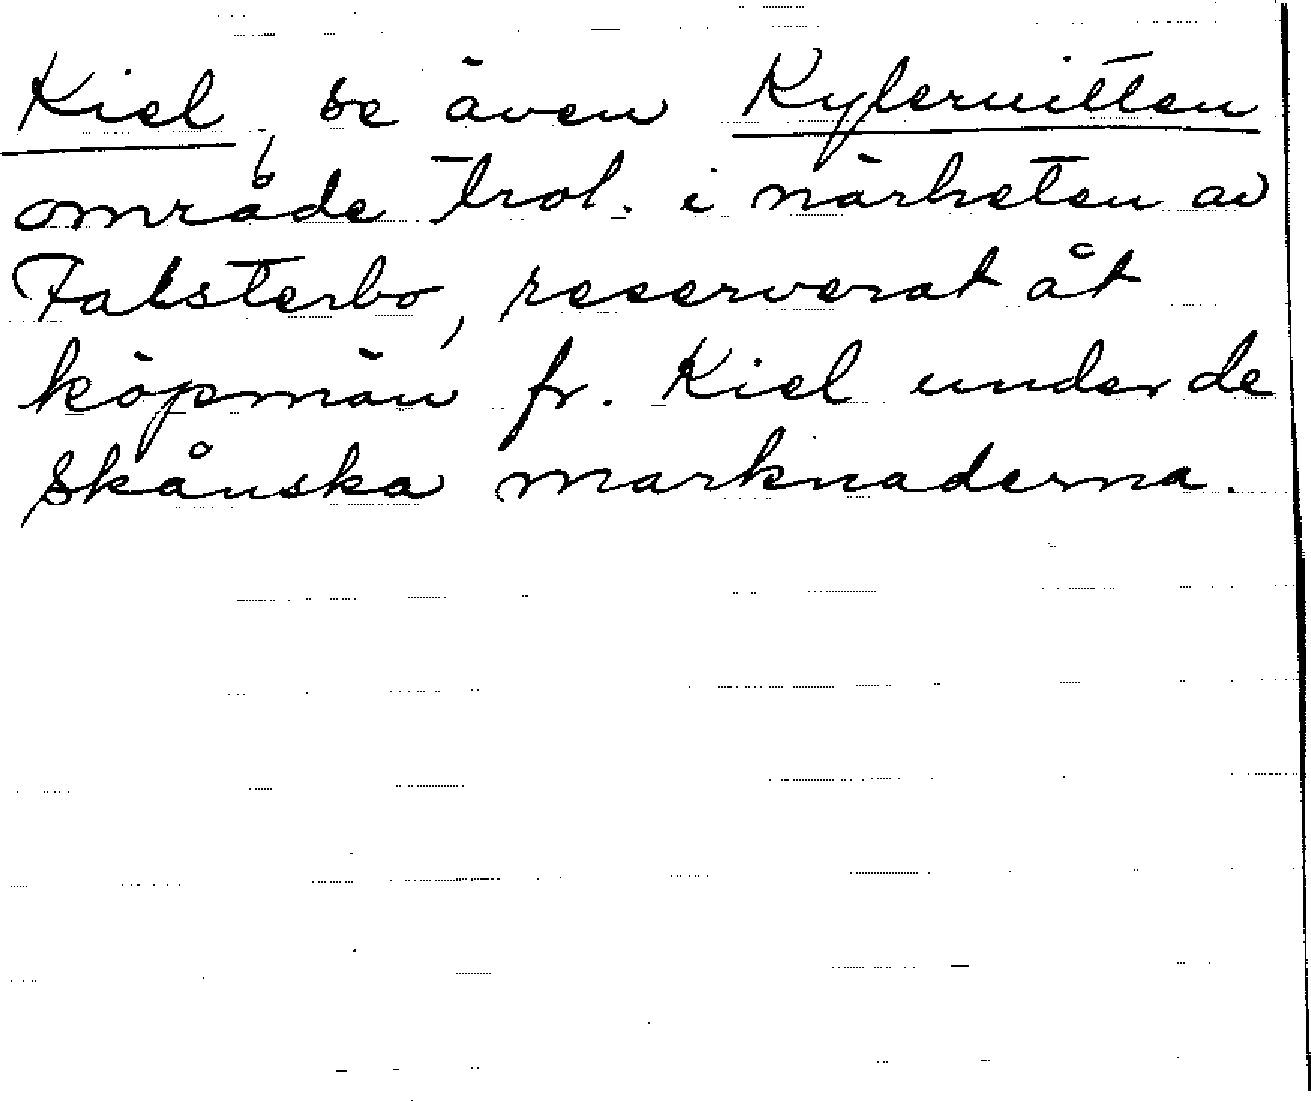 Kiel, se även Kylervitten
område trol. i närheten av
Falsterbo, reserverat åt
köpmän fr. Kiel under de
Skånska marknaderna.